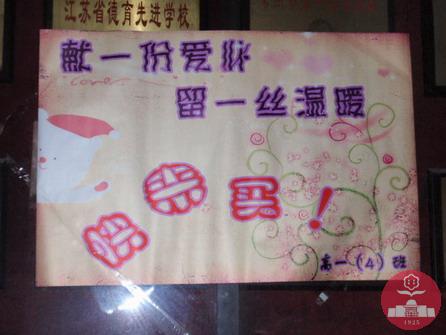 江苏省德育先进学校
献一份爱心
留一丝温暖
尝尝买！
高一（4）班
1925